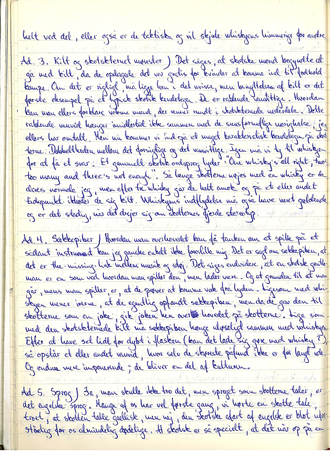 helt ved det, eller også er de taktiske og vil skjule whiskyens hemmelige for andre
Ad. 3. Kilt og skotskternet mønster) Det siges, at skotske mænd begyndte at
gå med kilt, da de opdagede det var gratis for kvinder at komme ind til fodbold
kampe. Om det er rigtigt, må ligge hen i det uvisse, men benyttelsen af kilt er det
første eksempel på et typisk skotsk kendetegn. De er ridende
kan man ellers forklare voksne mænd, der render rundt i skotskternede nederdele. Dette
hænger imidlertid ikke sammen med de
ellers har omtalt. Men nu kommer vi ind på et meget karakteristisk kendetegn på skot
terne. Dobbeltheden mellem det fornuftige og det Igen må vi ty til whiskyen
for at få et svar. Et gammelt skotsk ordsprog lyder: "One whisky's all right, two's
too many and three's not enough". Så længe skotterne nøjes med en whisky er de
deres normale jeg, men efter to whisky går de helt amok, og på et eller andet
tidspunkt tager de sig kilt. Whiskyens indflydelse må også have været gældende
og er det stadig, når det drejer sig om skotternes fjerde stereotyp.
Ad 4. Sækkepiber) Hvordan man overhovedet kan få tanken om at spille på et
sådant instrument kan jeg ganske enkelt ikke forestille mig. Det er sagt om sækkepiben, at
det er the missing link mellem musik og støj. Det siges endvidere, at en skotsk gade
man er en som ved hvordan man spiller den, men lader være. Og at grunden til at man
går, mens man spiller, er, at de prøver at komme væk fra lyden. Ligesom med whi-
skyen mener irerne, at de egentlig opfandt sækkepiben, men da de gav den til
skotterne som en joke, gik joken hen over hovedet på skotterne. Lige som
med den skotskternede kilt må sækkepiben hænge uløseligt sammen med whiskyen.
Efter at have set lidt for dybt i flasken (kan det lade sig gøre med whisky?)
så opstår et eller andet vanvid, hvor selv de skøreste påfund ikke er for langt ude.
Og endnu mere imponerende; de bliver en del af kulturen.
Ad 5. Sprog) Jo, man skulle ikke tro det, men sproget som skotterne taler, er
det engelske sprog. Mange af os har vel første gang, vi hørte en skotte tale,
troet, at skotten talte gællisk, men nej, den skotske afart af engelsk er blot ufor-
ståelig for os almindelig dødelige. At skotsk er så specielt, at det når op på en